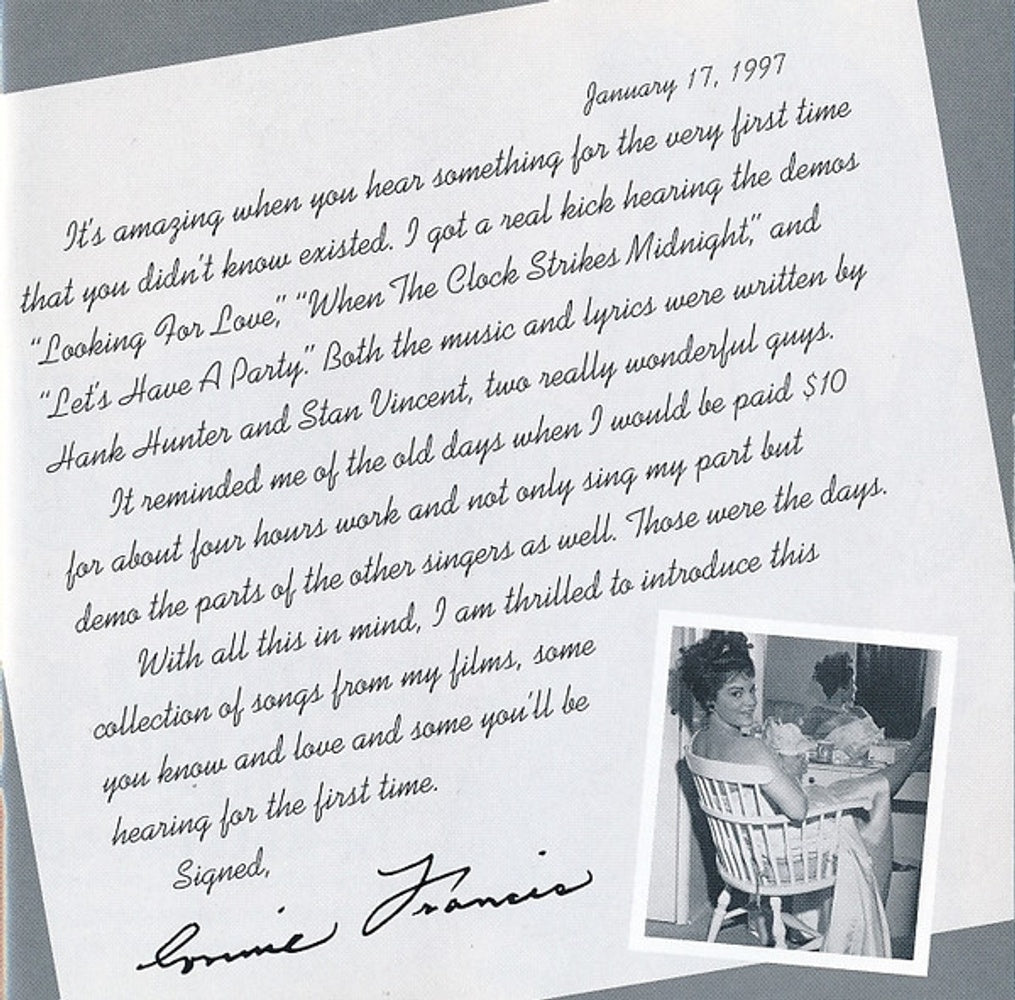 January 17, 1997
It's amazing when you hear something for the very first time
that you didn't know existed. I got a real kick hearing the demos
"Looking For Love," "When The Clock Strikes Midnight," and
"Let's Have A Party." Both the music and lyrics were written by
Hank Hunter and Stan Vincent, two really wonderful guys.
It reminded me of the old days when I would be paid $10
for about four hours work and not only sing my part but
demo the parts of the other singers as well. Those were the days.
With all this in mind, I am thrilled to introduce this
collection of songs from my films, some
you know and love and some you'll be
hearing for the first time.
Signed,
Connie Francis